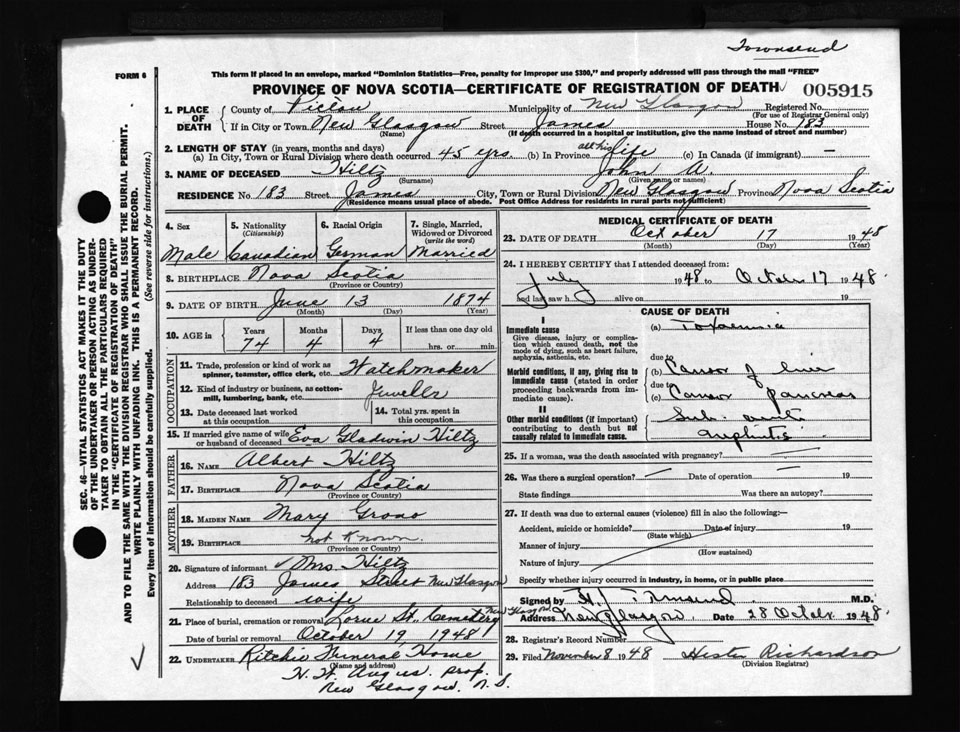 Townsend
FORM 6
This form if placed in an envelope, marked "Dominion Statistics—Free, penalty for improper use $300," and properly addressed will pass through the mail "FREE"
PROVINCE OF NOVA SCOTIA—CERTIFICATE OF REGISTRATION OF DEATH 005915
1. PLACE OF DEATH
County of Pictou Municipality of New Glasgow Registered No.
(For use of Registrar General only)
If in City or Town New Glasgow Street James House No. 183
(Name) (If death occurred in a hospital or institution, give the name instead of street and number)
2. LENGTH OF STAY (in years, months and days)
(a) In City, Town or Rural Division where death occurred 45 yrs. (b) In Province all his life (c) In Canada (if immigrant) —
3. NAME OF DECEASED Hiltz John
(Surname) (Given name or names)
RESIDENCE No. 183 Street James City, Town or Rural Division New Glasgow Province Nova Scotia
(Residence means usual place of abode. Post Office Address for residents in rural parts not sufficient)
4. Sex 5. Nationality (Citizenship) 6. Racial Origin 7. Single, Married, Widowed or Divorced (write the word)
Male Canadian German Married
8. BIRTHPLACE Nova Scotia
(Province or Country)
9. DATE OF BIRTH June 13 1874
(Month) (Day) (Year)
10. AGE in Years Months Days If less than one day old
74 4 4 hrs. or min.
OCCUPATION
11. Trade, profession or kind of work as spinner, teamster, office clerk, etc. Watchmaker
12. Kind of industry or business, as cotton-mill, lumbering, bank, etc.
13. Date deceased last worked at this occupation 14. Total yrs. spent in this occupation
15. If married give name of wife or husband of deceased Eva Gladwin Hiltz
FATHER
16. NAME Albert Hiltz
17. BIRTHPLACE Nova Scotia
(Province or Country)
MOTHER
18. MAIDEN NAME Mary Grono
19. BIRTHPLACE not known.
(Province or Country)
20. Signature of informant Mrs. Hiltz
Address 183 James Street New Glasgow
Relationship to deceased wife
21. Place of burial, cremation or removal Lorne St. Cemetery New Glasgow
Date of burial or removal October 19 1948
22. UNDERTAKER Ritchie Funeral Home
(Name and address)
H. W. Angus, prop.
New Glasgow, N.S.
MEDICAL CERTIFICATE OF DEATH
23. DATE OF DEATH October 17 1948
(Month) (Day) (Year)
24. I HEREBY CERTIFY that I attended deceased from:
July 1948 to October 17 1948
and last saw h alive on 19
CAUSE OF DEATH
I
Immediate cause (a) Toxaemia
Give disease, injury or complication which caused death, not the mode of dying, such as heart failure, asphyxia, asthenia, etc.
due to
Morbid conditions, if any, giving rise to immediate cause (stated in order proceeding backwards from immediate cause).
(b) Cancer of liver
due to
(c) Cancer pancreas
II
Other morbid conditions (if important) contributing to death but not causally related to immediate cause.
25. If a woman, was the death associated with pregnancy?
26. Was there a surgical operation? — Date of operation — 19
State findings Was there an autopsy?
27. If death was due to external causes (violence) fill in also the following:—
Accident, suicide or homicide? Date of injury 19
(State which)
Manner of injury
(How sustained)
Nature of injury
Specify whether injury occurred in industry, in home, or in public place
Signed by Townsend M.D.
Address New Glasgow. Date 28 October 1948.
28. Registrar's Record Number
29. Filed November 8 1948 Hester Richardson
(Division Registrar)
SEC. 46—VITAL STATISTICS ACT MAKES IT THE DUTY
OF THE UNDERTAKER OR PERSON ACTING AS UNDER-
TAKER TO OBTAIN ALL THE PARTICULARS REQUIRED
IN THE "CERTIFICATE OF REGISTRATION OF DEATH"
AND TO FILE THE SAME WITH THE DIVISION REGISTRAR WHO SHALL ISSUE THE BURIAL PERMIT.
WRITE PLAINLY WITH UNFADING INK. THIS IS A PERMANENT RECORD.
Every item of information should be carefully supplied. (See reverse side for instructions.)